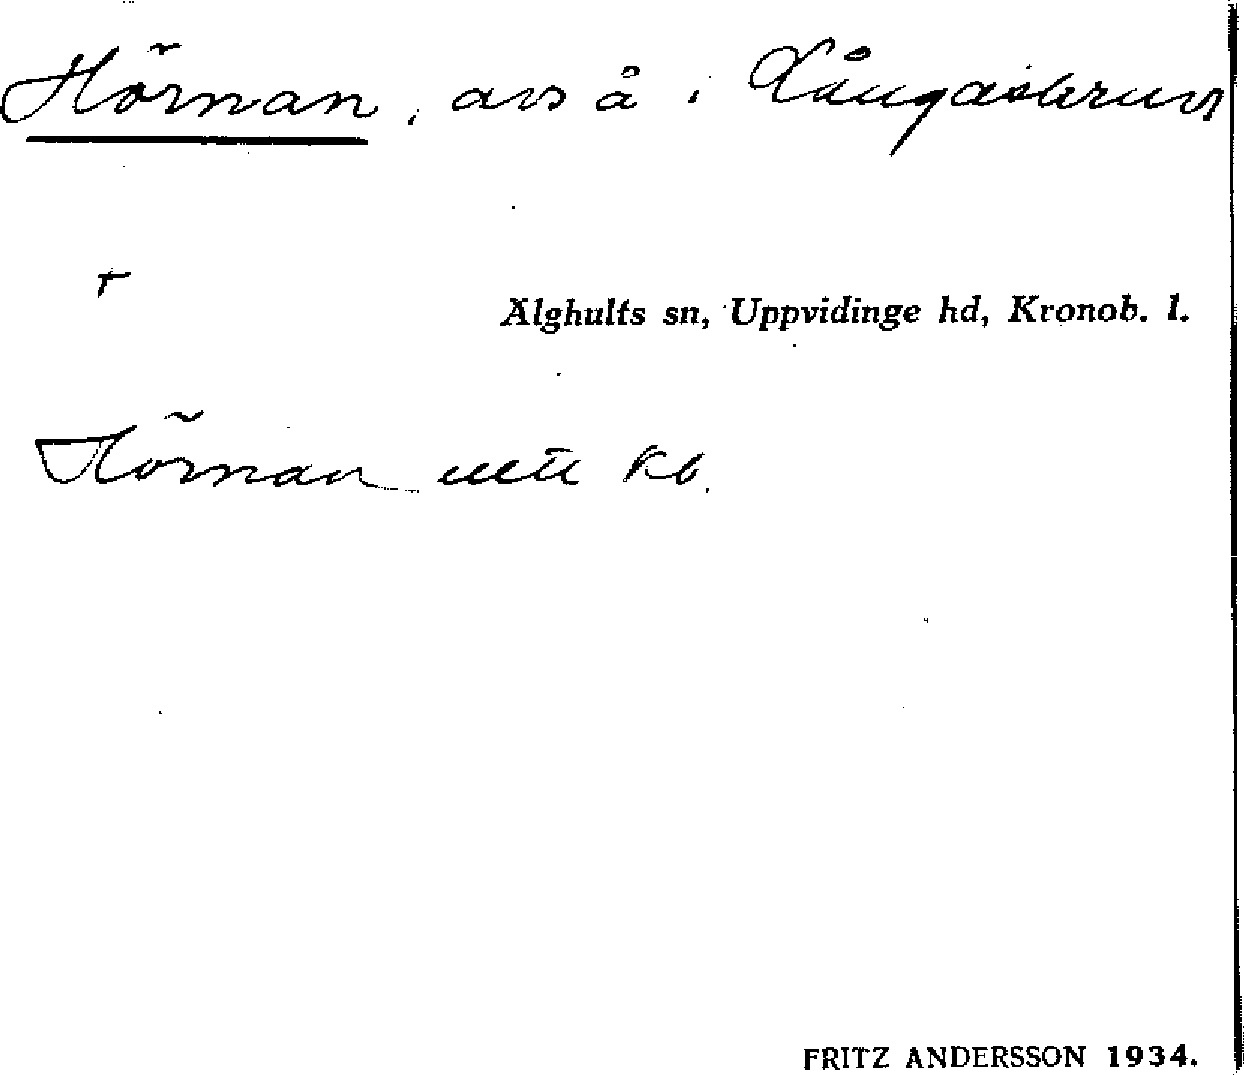 Hörnan, avs å i Långasker
Älghults sn, Uppvidinge hd, Kronob. l.
Hörnan enl. kb.
FRITZ ANDERSSON 1934.